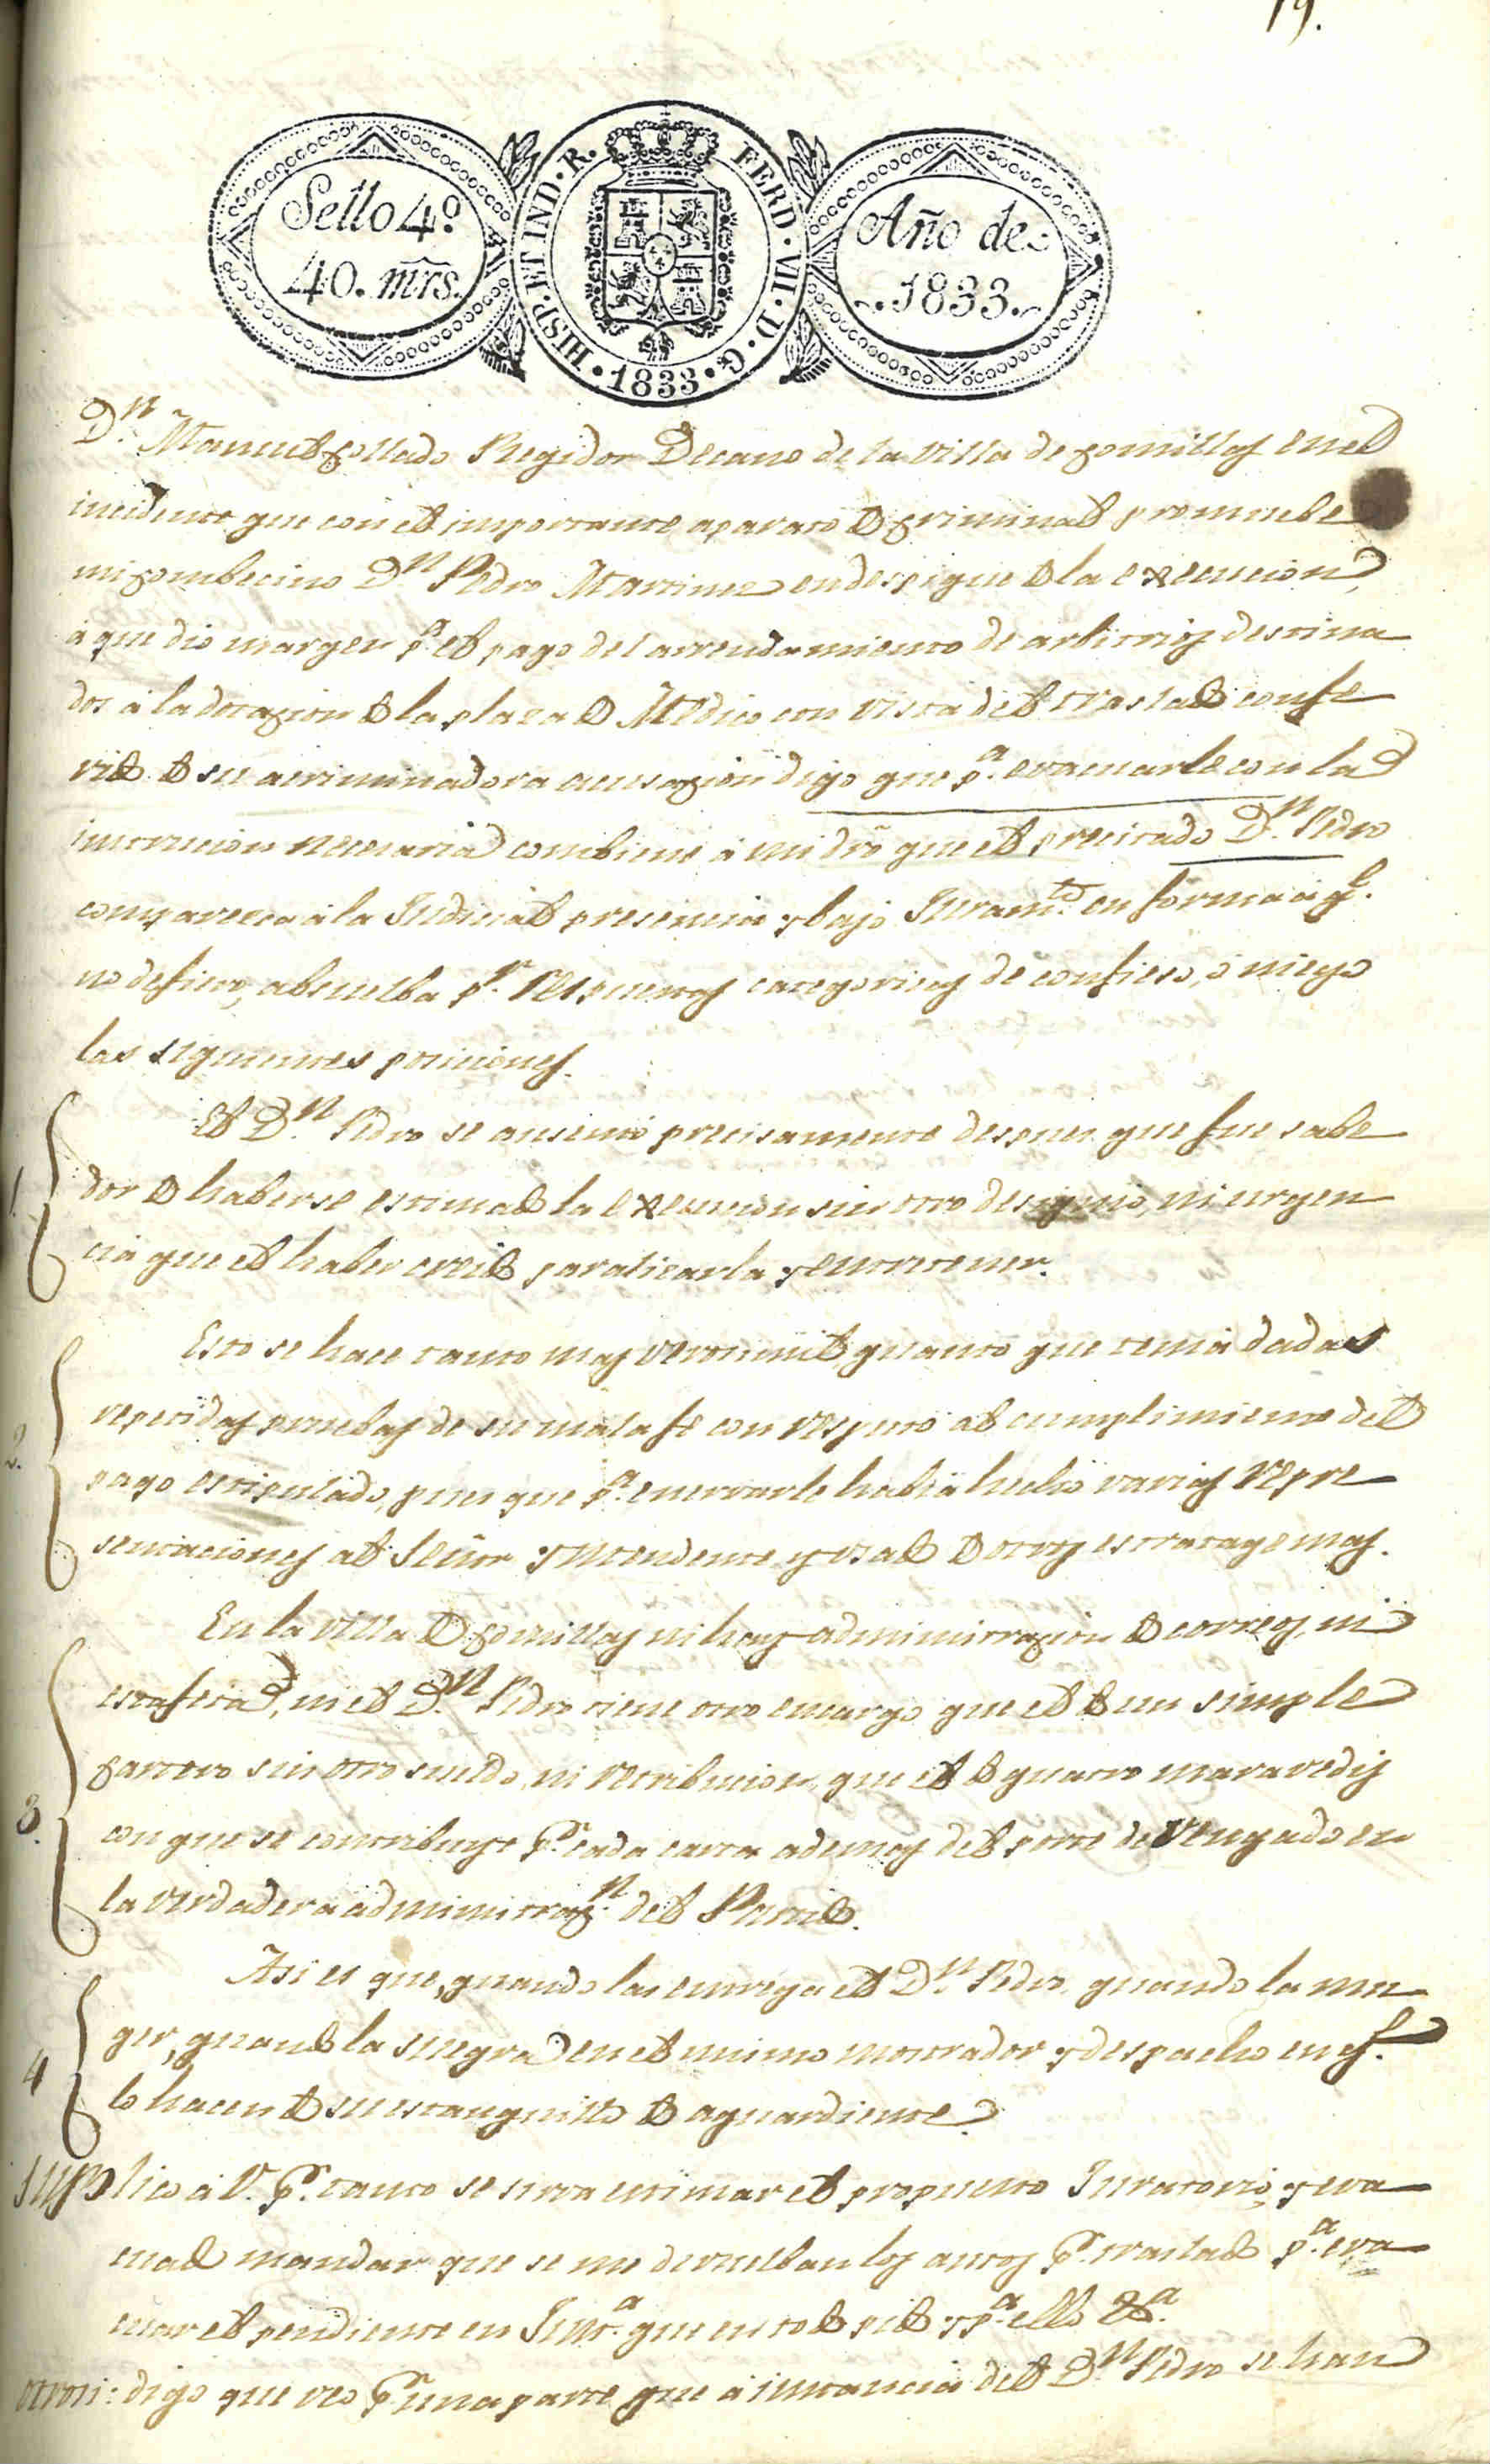 19.
Sello 4º
40. mrs.
HISP. ET IND. R. FERD. VII. D. G. 1833.
Año de
1833.
Dn. Manuel Collado Regidor Decano de la villa de Comillas en el
incidente que con el importante aparato de Criminal promuebe
mi Combecino Dn Pedro Martinez en despique de la execucion,
á que dio margen pa. el pago del arrendamiento de arbitrios destina
dos á la dotazion de la plaza de Medico con vista del traslado confe
rido de su acriminadora acusazion digo que pa. evacuarle con la
instrucion necesaria combiene á mi dro que el precitado Dn. Pedro
comparezca á la Judicial presencia y bajo Juramto. en forma á q.
no defiero, absuelba pr. respuestas categoricas de confieso, ó niego
las siguientes posiciones.
1. El Dn. Pedro se ausentó precisamente despues que fue sabe
dor de haberse estimado la execucion sin otro designio, ni urgen
cia que el haber creido paralizarla y entretener.
Esto se hace tanto mas verosimil quanto que tenia dadas
2. repetidas pruebas de su mala fe con respecto al cumplimiento del
pago estipulado, pues que pa. enervarle habia hecho varias repre
sentaciones al Señor Yntendente y usado de otros estratagemas.
En la villa de Comillas ni hay administrazion de correos, ni
estafeta, ni el Dn. Pedro tiene otro encargo que el de un simple
Cartero sin otro sueldo, ni retribucion que el de quatro maravedis
3. con que se contribuye pr. cada carta ademas del porte devengado en
la verdadera administrazn. del Partido.
Asi es que, quando las entrega el Dn. Pedro, quando la mu
4 ger, quando la suegra en el mismo mostrador y despacho en q.
lo hacen de su estanquillo de aguardiente.
Suplico á V. pr. tanto se sirva estimar el propuesto Juratorio, y eva
cuado mandar que se me devuelban los autos pr. traslado pa. eva
cuar el pendiente en Justa. que en todo pido y pa. ello &a.
otrosi: digo que veo pr. una parte que á instancia del Dn. Pedro se han